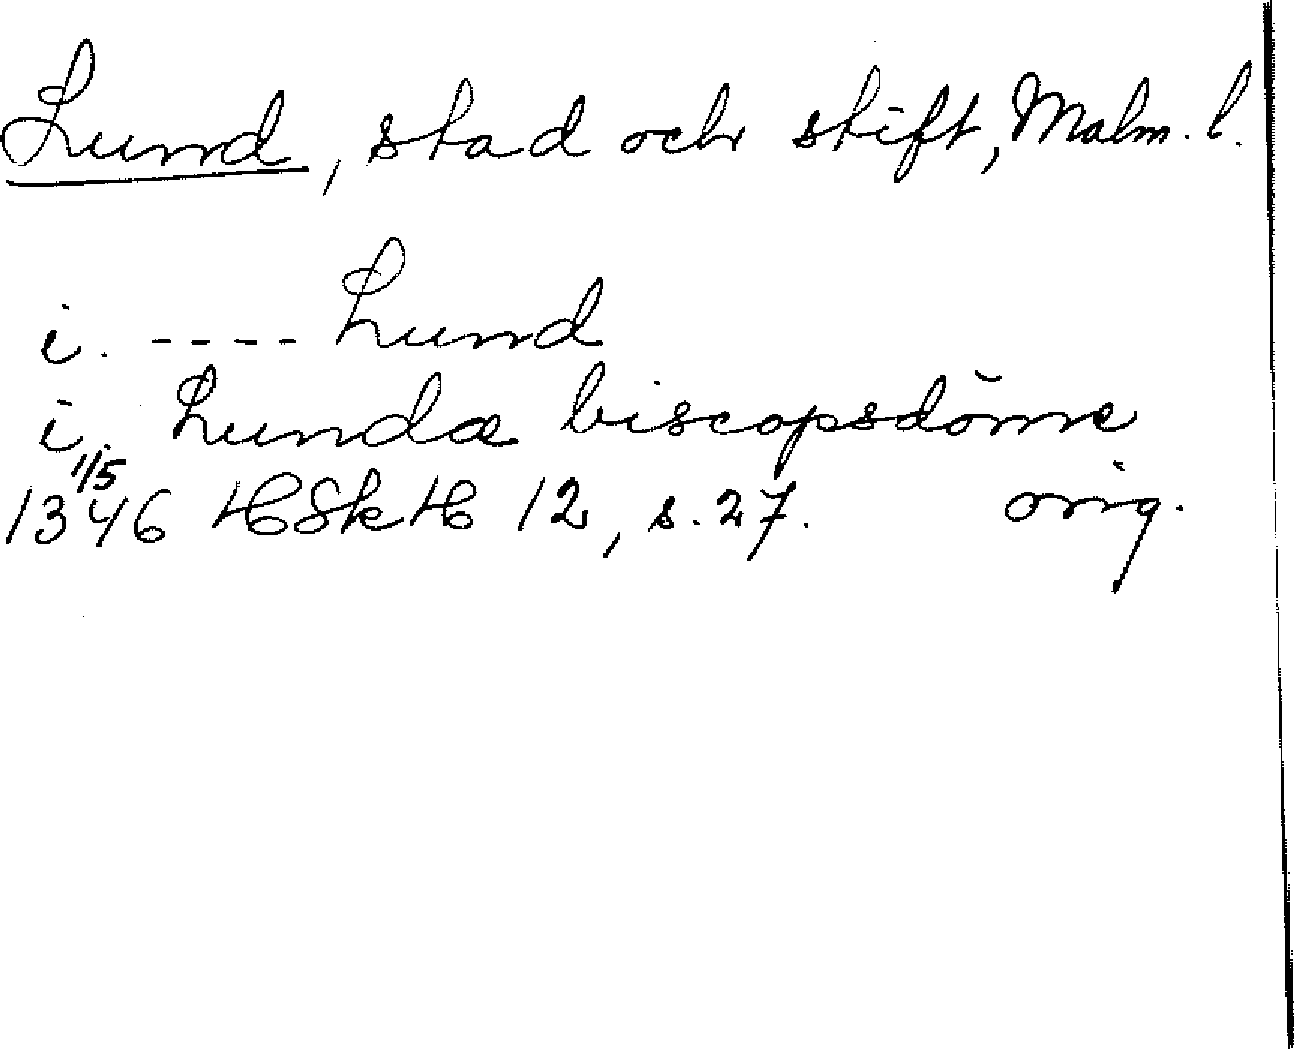 Lund, stad och stift, Malm. l.
i. ---- Lund
i. Lundæ biscopsdöme
1/5
1346 HSkH 12, s. 27. orig.